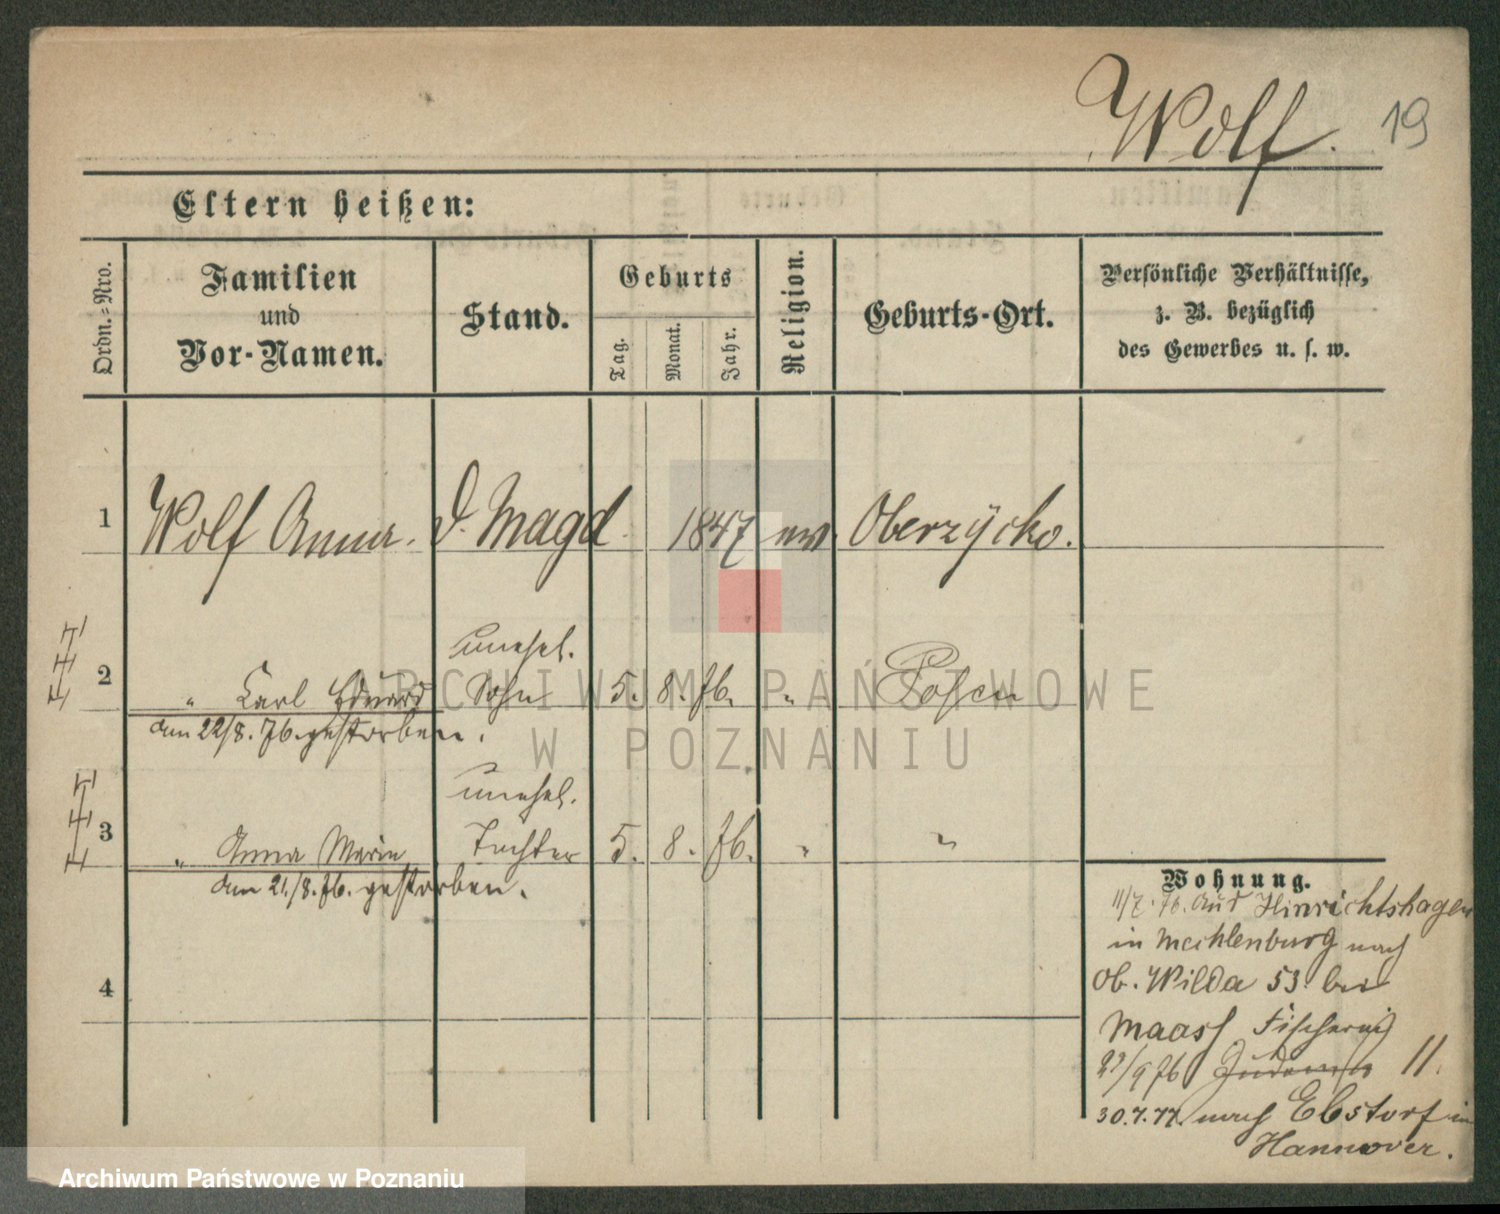 Wolf. 19
Eltern heißen:
Ordn.=Nro.
Familien
und
Vor-Namen.
Stand.
Geburts
Tag.
Monat.
Jahr.
Religion.
Geburts-Ort.
Persönliche Verhältnisse,
z. B. bezüglich
des Gewerbes u. s. w.
1 Wolf Anna. d. Magd 1847 ev. Oberzycko.
unehel.
2 " Carl Eduard Sohn 5. 8. 76. " Posen
am 22/8. 76. gestorben.
unehel.
3 " Anna Marie Tochter 5. 8. 76. " "
am 21./8. 76. gestorben.
4
Wohnung.
11/7. 76. aus Hinrichtshagen
in Mecklenburg nach
Ob. Wilda 53 bei
Maass Fischerei
23/9 76 11.
30.7.77. nach Ebstorf in
Hannover.
ARCHIWUM PAŃSTWOWE
W POZNANIU
Archiwum Państwowe w Poznaniu